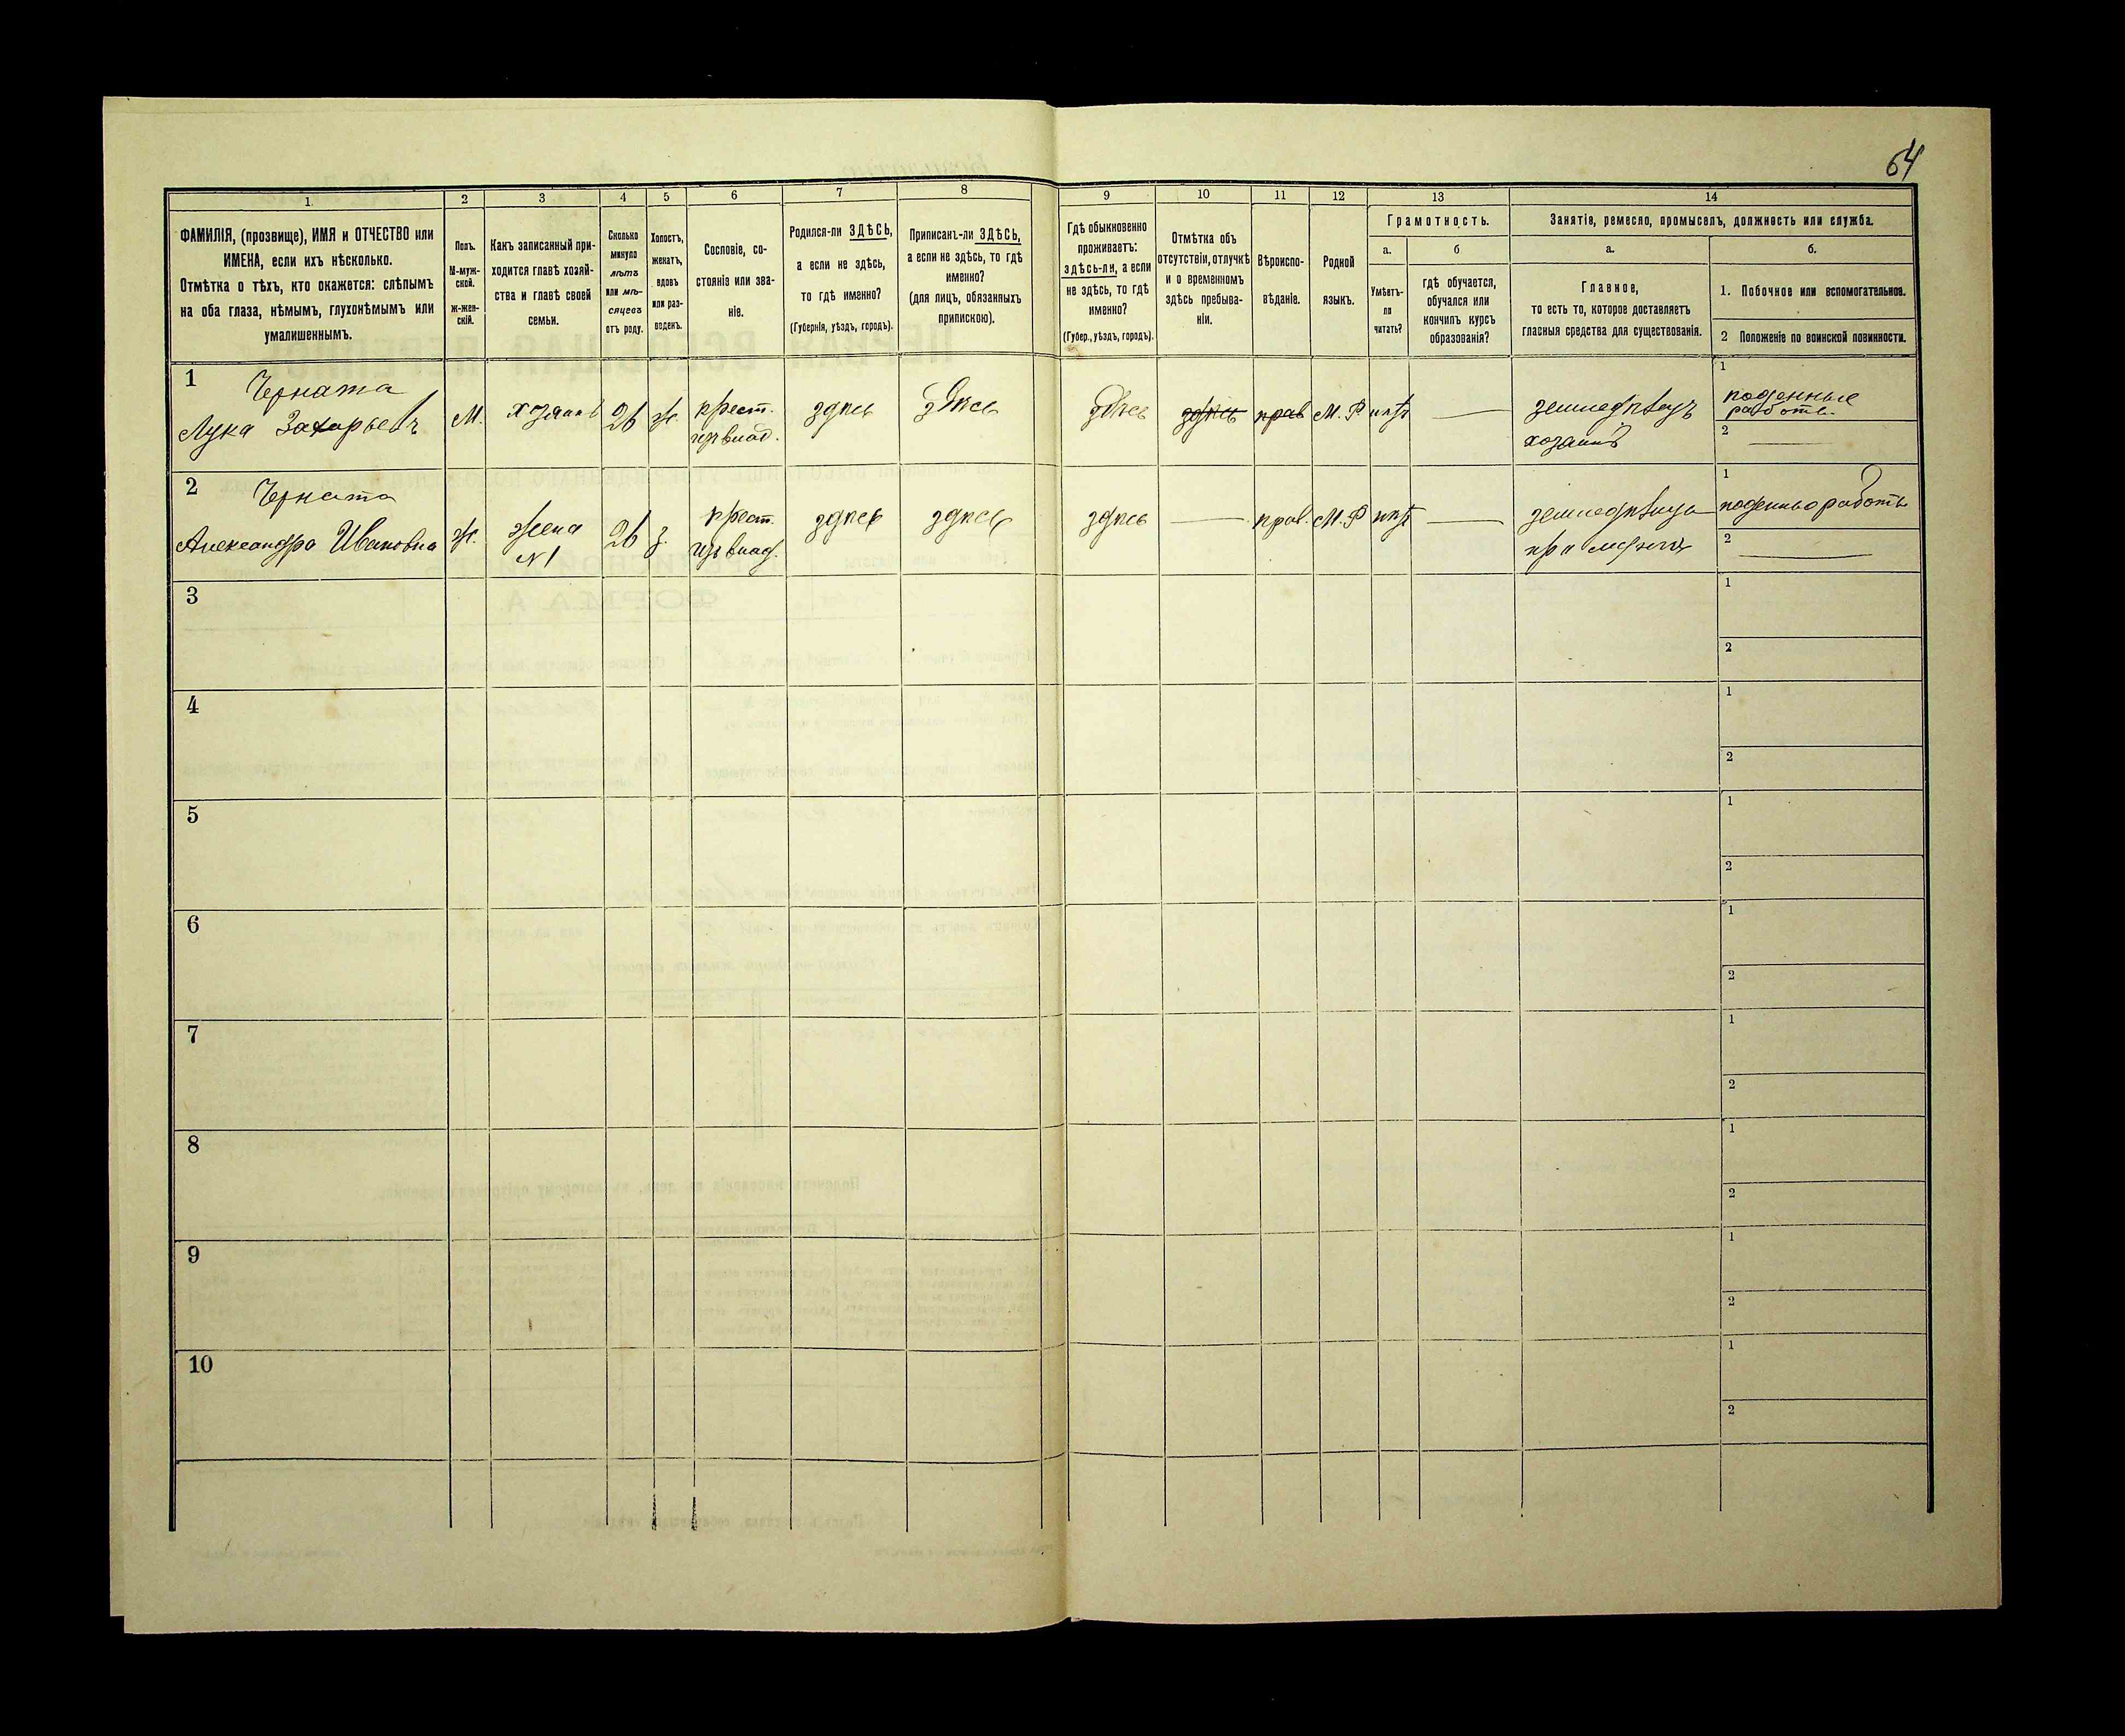 64
1
2
3
4
5
6
7
8
9
10
11
12
13
14
ФАМИЛІЯ, (прозвище), ИМЯ и ОТЧЕСТВО или
ИМЕНА, если ихъ нѣсколько.
Отмѣтка о тѣхъ, кто окажется: слѣпымъ
на оба глаза, нѣмымъ, глухонѣмымъ или
умалишеннымъ.
Полъ.
М-муж-
ской.
ж-жен-
скій.
Какъ записанный при-
ходится главѣ хозяй-
ства и главѣ своей
семьи.
Сколько
минуло
лѣтъ
или мѣ-
сяцевъ
отъ роду.
Холостъ,
женатъ,
вдовъ
или раз-
веденъ.
Сословіе, со-
стояніе или зва-
ніе.
Родился-ли ЗДѢСЬ,
а если не здѣсь,
то гдѣ именно?
(Губернія, уѣздъ, городъ).
Приписанъ-ли ЗДѢСЬ,
а если не здѣсь, то гдѣ
именно?
(для лицъ, обязанныхъ
припискою).
Гдѣ обыкновенно
проживаетъ:
здѣсь-ли, а если
не здѣсь, то гдѣ
именно?
(Губер., уѣздъ, городъ).
Отмѣтка объ
отсутствіи, отлучкѣ
и о временномъ
здѣсь пребыва-
ніи.
Вѣроиспо-
вѣданіе.
Родной
языкъ.
Грамотность.
а.
Умѣетъ-
ли
читать?
б
гдѣ обучается,
обучался или
кончилъ курсъ
образованія?
Занятіе, ремесло, промыселъ, должность или служба.
а.
Главное,
то есть то, которое доставляетъ
главныя средства для существованія.
б.
1. Побочное или вспомогательное.
2 Положеніе по воинской повинности.
1
Черната
Лука Захарьевъ
М.
26
ж.
крест.
здѣсь
здѣсь
здѣсь
здѣсь
прав
М. Р.
нѣтъ
земледѣлецъ
хозяинъ
1
поденные
работы
2
2
Черната
Александра Ивановна
ж.
жена
№1
26
з.
крест.
здѣсь
здѣсь
здѣсь
прав.
М. Р
нѣтъ
1
2
3
1
2
4
1
2
5
1
2
6
1
2
7
1
2
8
1
2
9
1
2
10
1
2